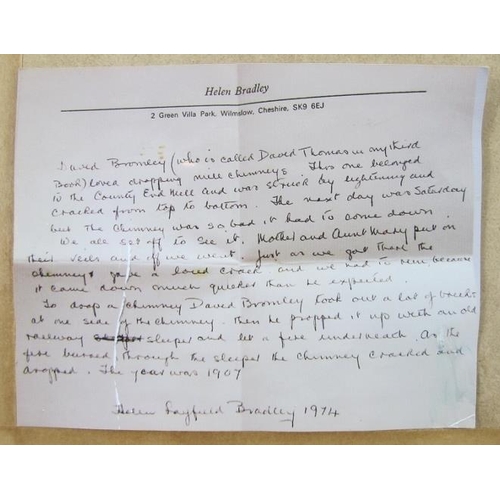 Helen Bradley
2 Green Villa Park, Wilmslow, Cheshire, SK9 6EJ
David Bromley (who is called David Thomas in my third
Book) loved dropping mill chimneys. This one belonged
to the County End Mill and was struck by lightning and
cracked from top to bottom. The next day was Saturday
but the chimney was so bad it had to come down.
We all set off to see it. Mother and Aunt Mary put on
their veils and off we went. Just as we got there the
chimney gave a loud crack and we had to run because
it came down much quicker than he expected.
To drop a chimney David Bromley took out a lot of bricks
at one side of the chimney. Then he propped it up with an old
railway sleeper and lit a fire underneath. As the
fire burned through the sleeper the chimney cracked and
dropped. The year was 1907
Helen Layfield Bradley 1974